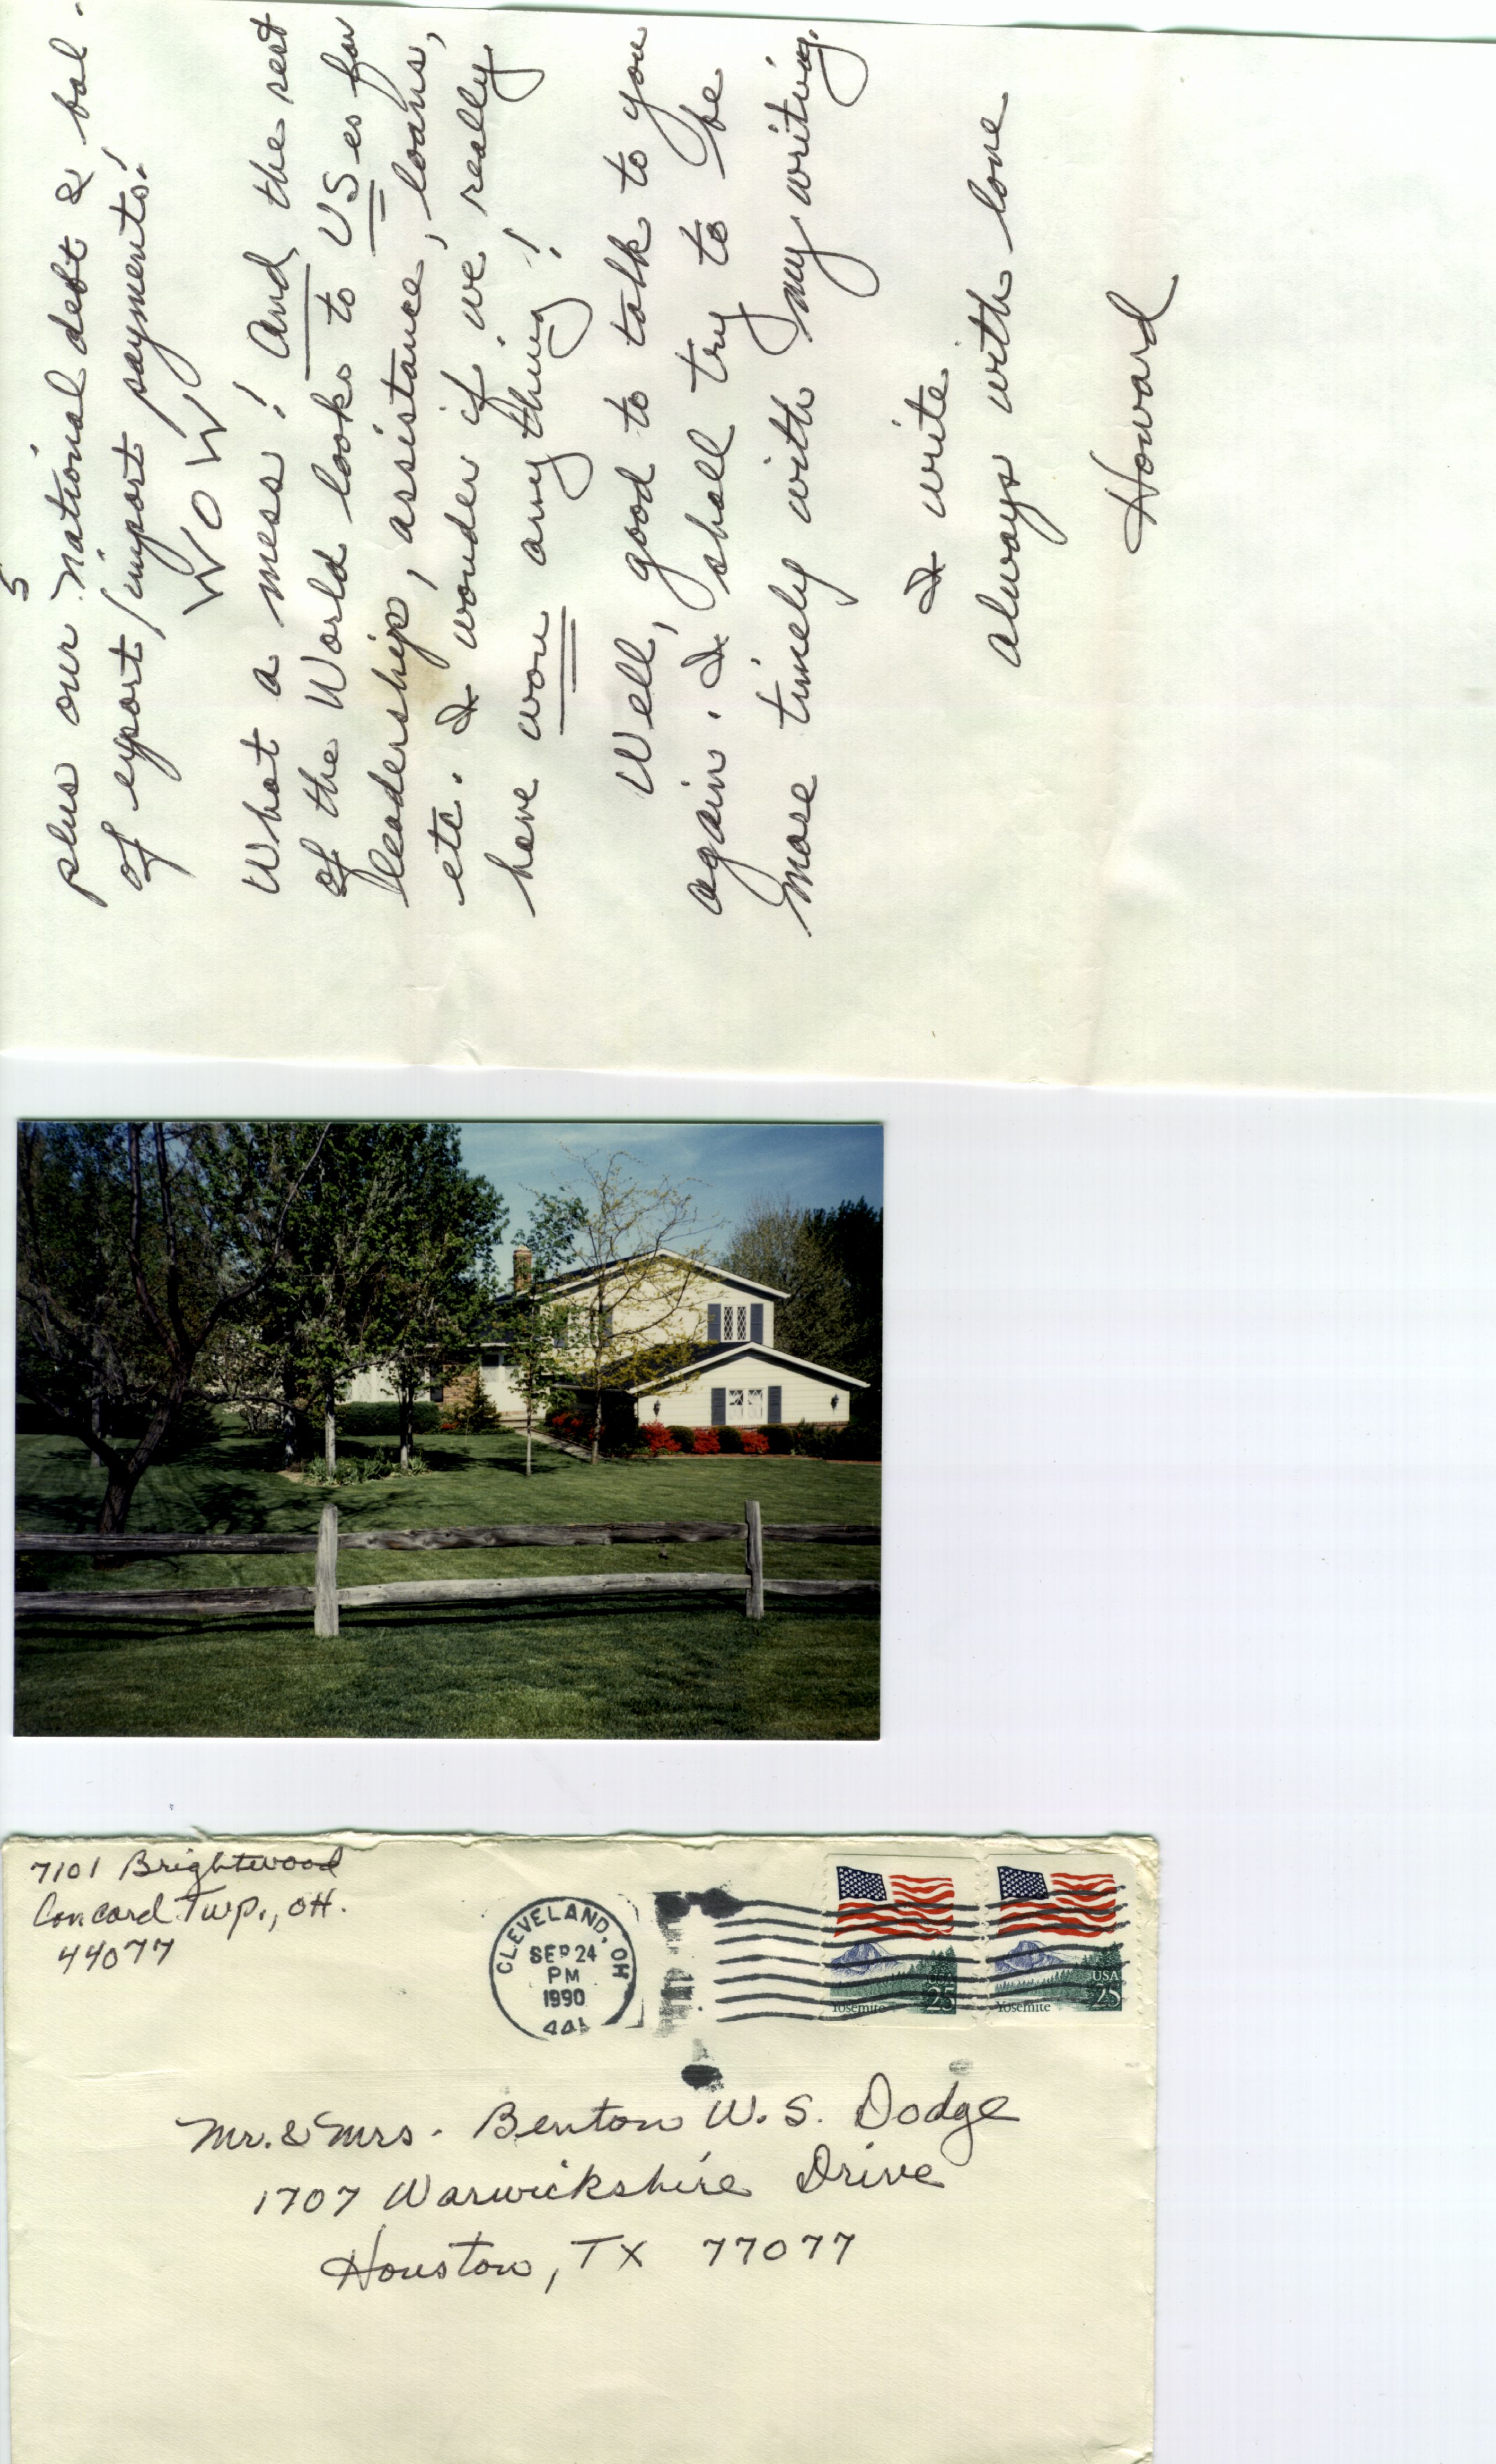 5
plus our National debt & bal.
of export/import payments!
WOW
What a mess! And the rest
of the World looks to US es for
leadership, assistance, loans,
etc. I wonder if we really
have won anything!
Well, good to talk to you
again. I shall try to be
more timely with my writing.
I write
always with love
Howard
7101 Brightwood
Concord Twp., OH.
44077
CLEVELAND, OH
SEP 24
PM
1990
441
Yosemite 25
Yosemite USA 25
Mr. & Mrs. Benton W. S. Dodge
1707 Warwickshire Drive
Houston, TX 77077